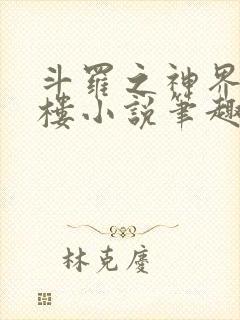 斗羅之神界
樓小說筆趣
林克慶